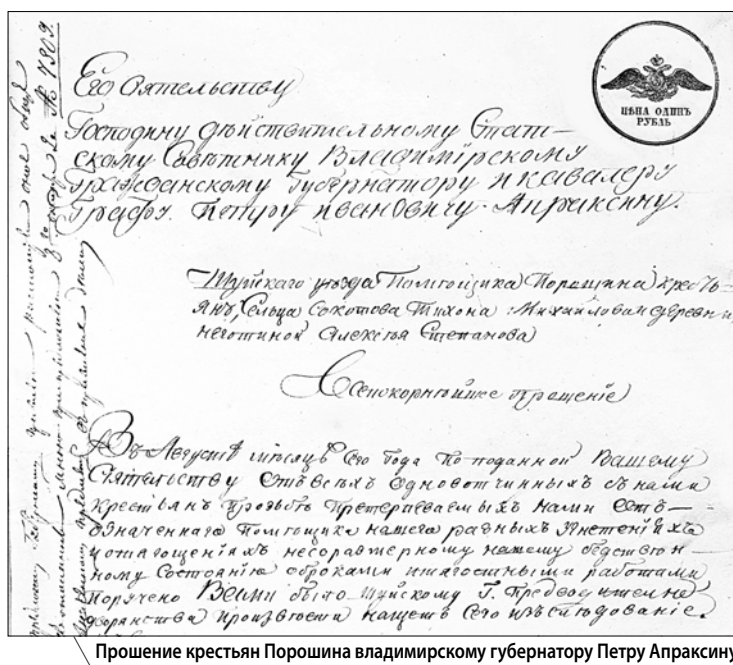 Его Сиятельству
Господину действительному Стат-
скому Советнику Владимiрскому
Гражданскому Губернатору и кавалеру
Графу Петру Ивановичу Апраксину.
ЦѢНА ОДИНЪ
РУБЛЬ
Шуйскаго уезда Помѣщика Порошина крестъ-
янъ, Сельца Сокотова Тихона Михайлова и деревни
Алексѣя Степанова
Всепокорнѣйшее прошенiе
Въ Августѣ мѣсяцѣ сего года по поданной Вашему
Сиятельству отъ всѣхъ одновотчинныхъ съ нами
крестьянъ прозьбѣ претерпеваемыхъ нами отъ
означеннаго Помѣщика нашего разныхъ угнетенiяхъ
и отягощенiяхъ несоразмерному нашему бедствен-
ному состоянiю оброками и тягостными работами
поручено Вами было Шуйскому Г. Предводителю
дворянства произвести нашетъ сего изъследованiе.
№ 7809.
Прошение крестьян Порошина владимирскому губернатору Петру Апраксину